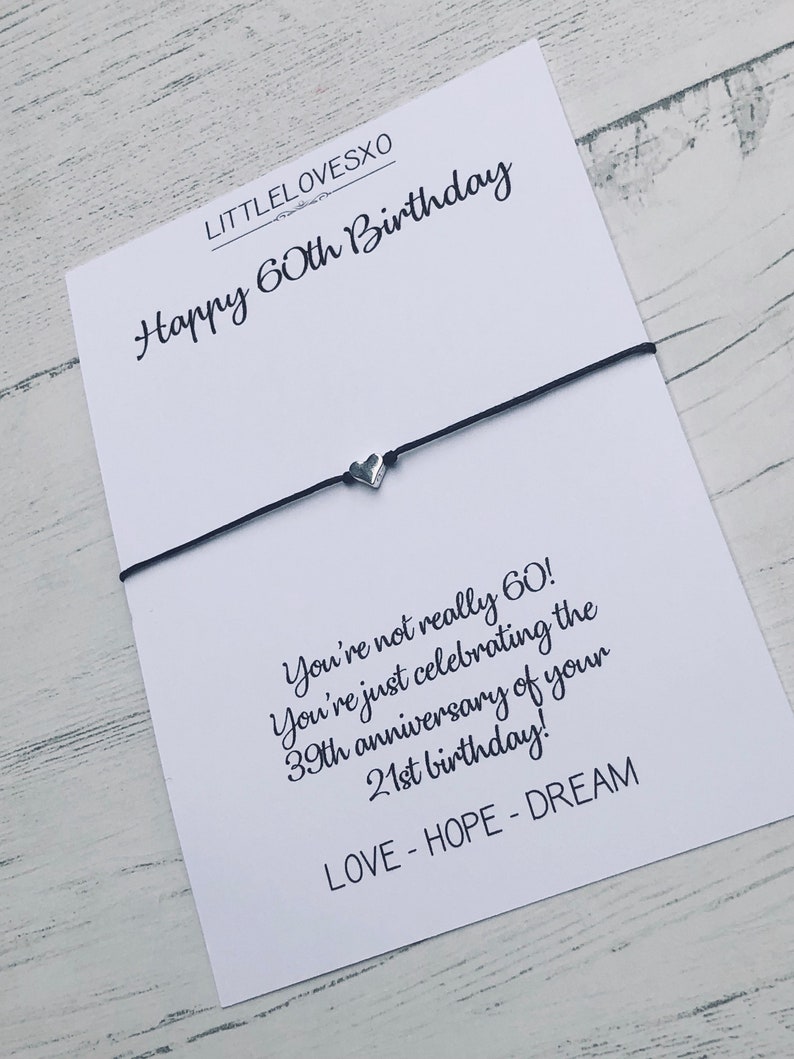 LITTLELOVESXO
Happy 60th Birthday
You're not really 60!
You're just celebrating the
39th anniversary of your
21st birthday!
LOVE - HOPE - DREAM